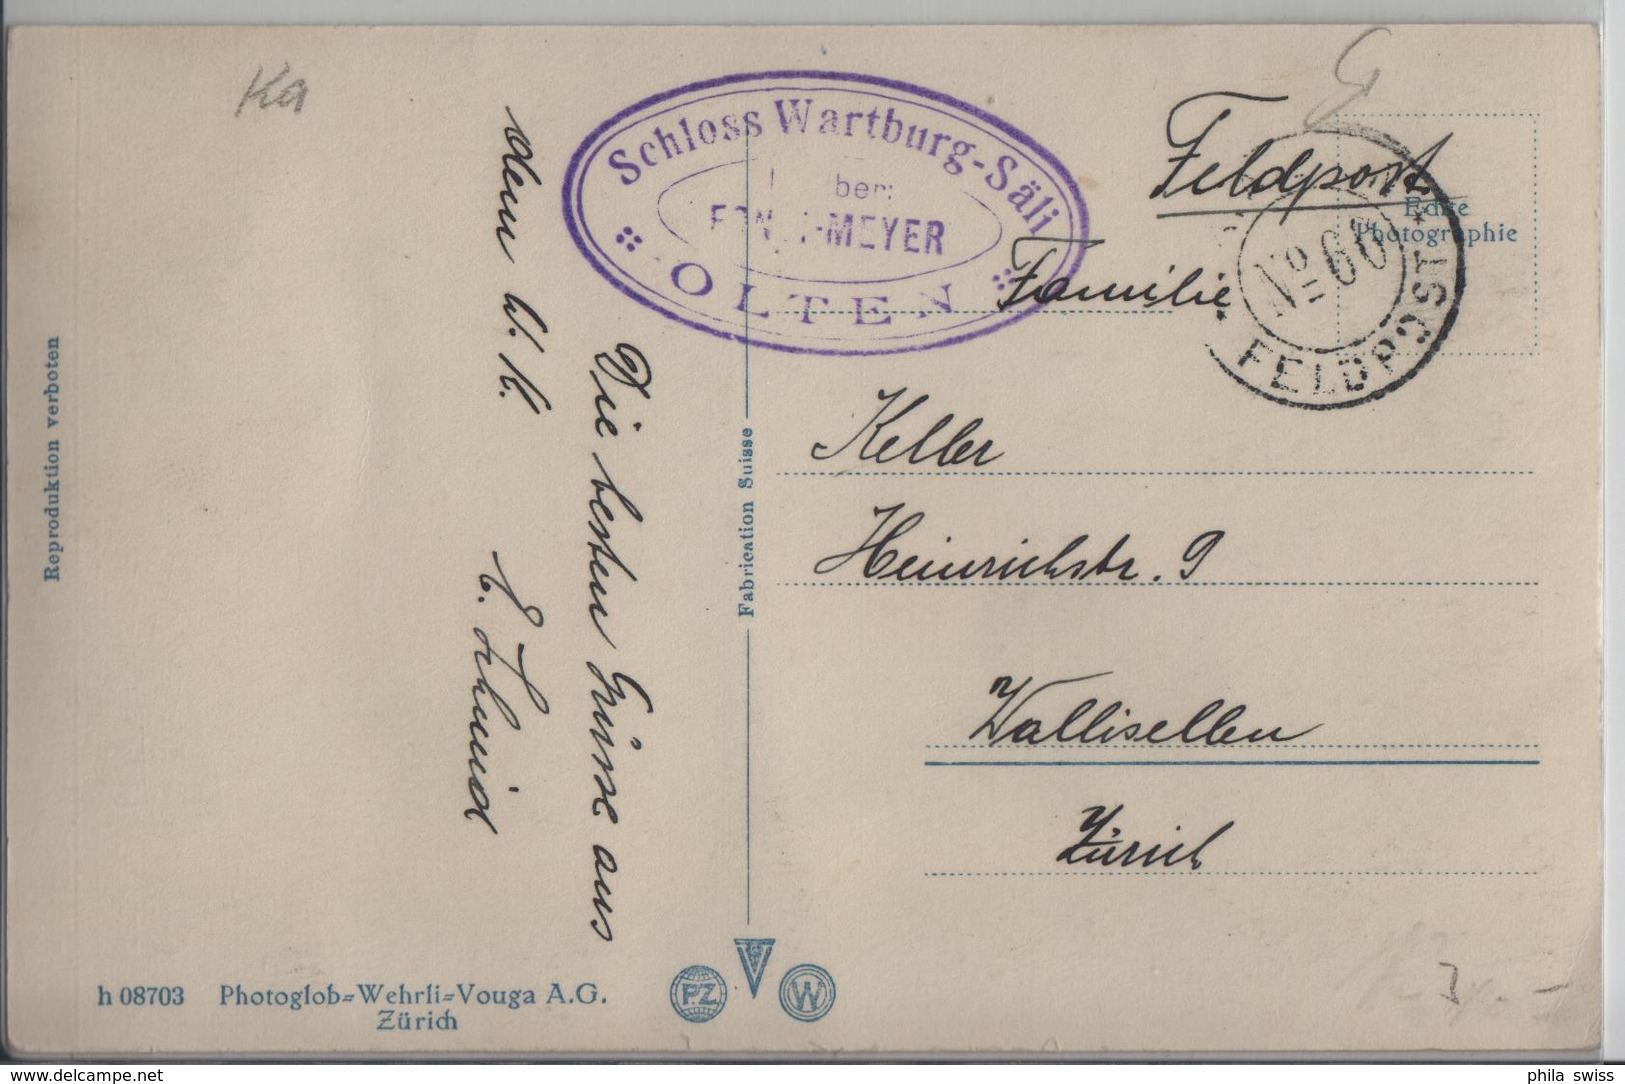 Ka
Schloss Wartburg-Säli
-MEYER
OLTEN
Feldpost
Edite
Photographie
No 66
FELDPOST
Familie
Keller
Heinrichstr. 9
Wallisellen
Zürich
Die besten Grüsse aus
dem W. K.
E. Schmid
Reproduktion verboten
Fabrication Suisse
h 08703 Photoglob=Wehrli=Vouga A.G.
Zürich
P.Z
V
W
www.delcampe.net
phila_swiss